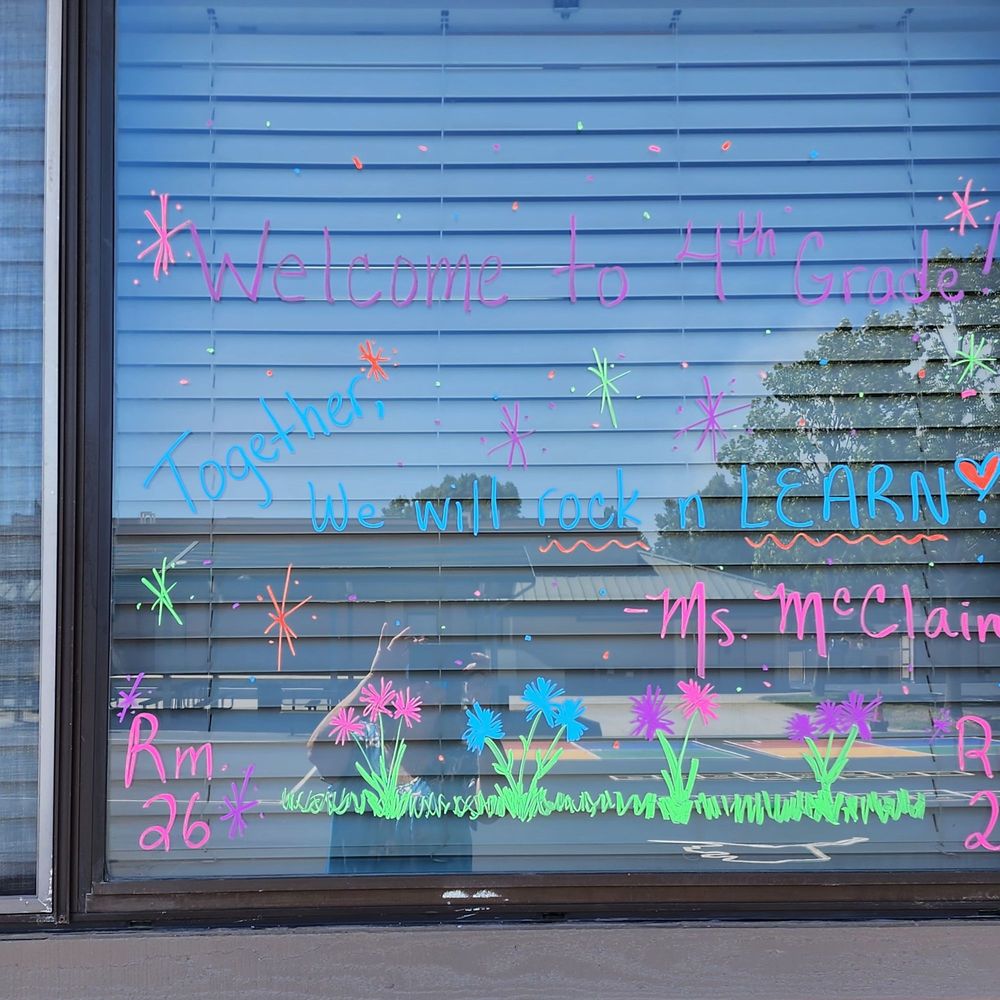 Welcome to 4th Grade!
Together,
We will rock n LEARN!
-Ms. McClain
Rm
26
R
2